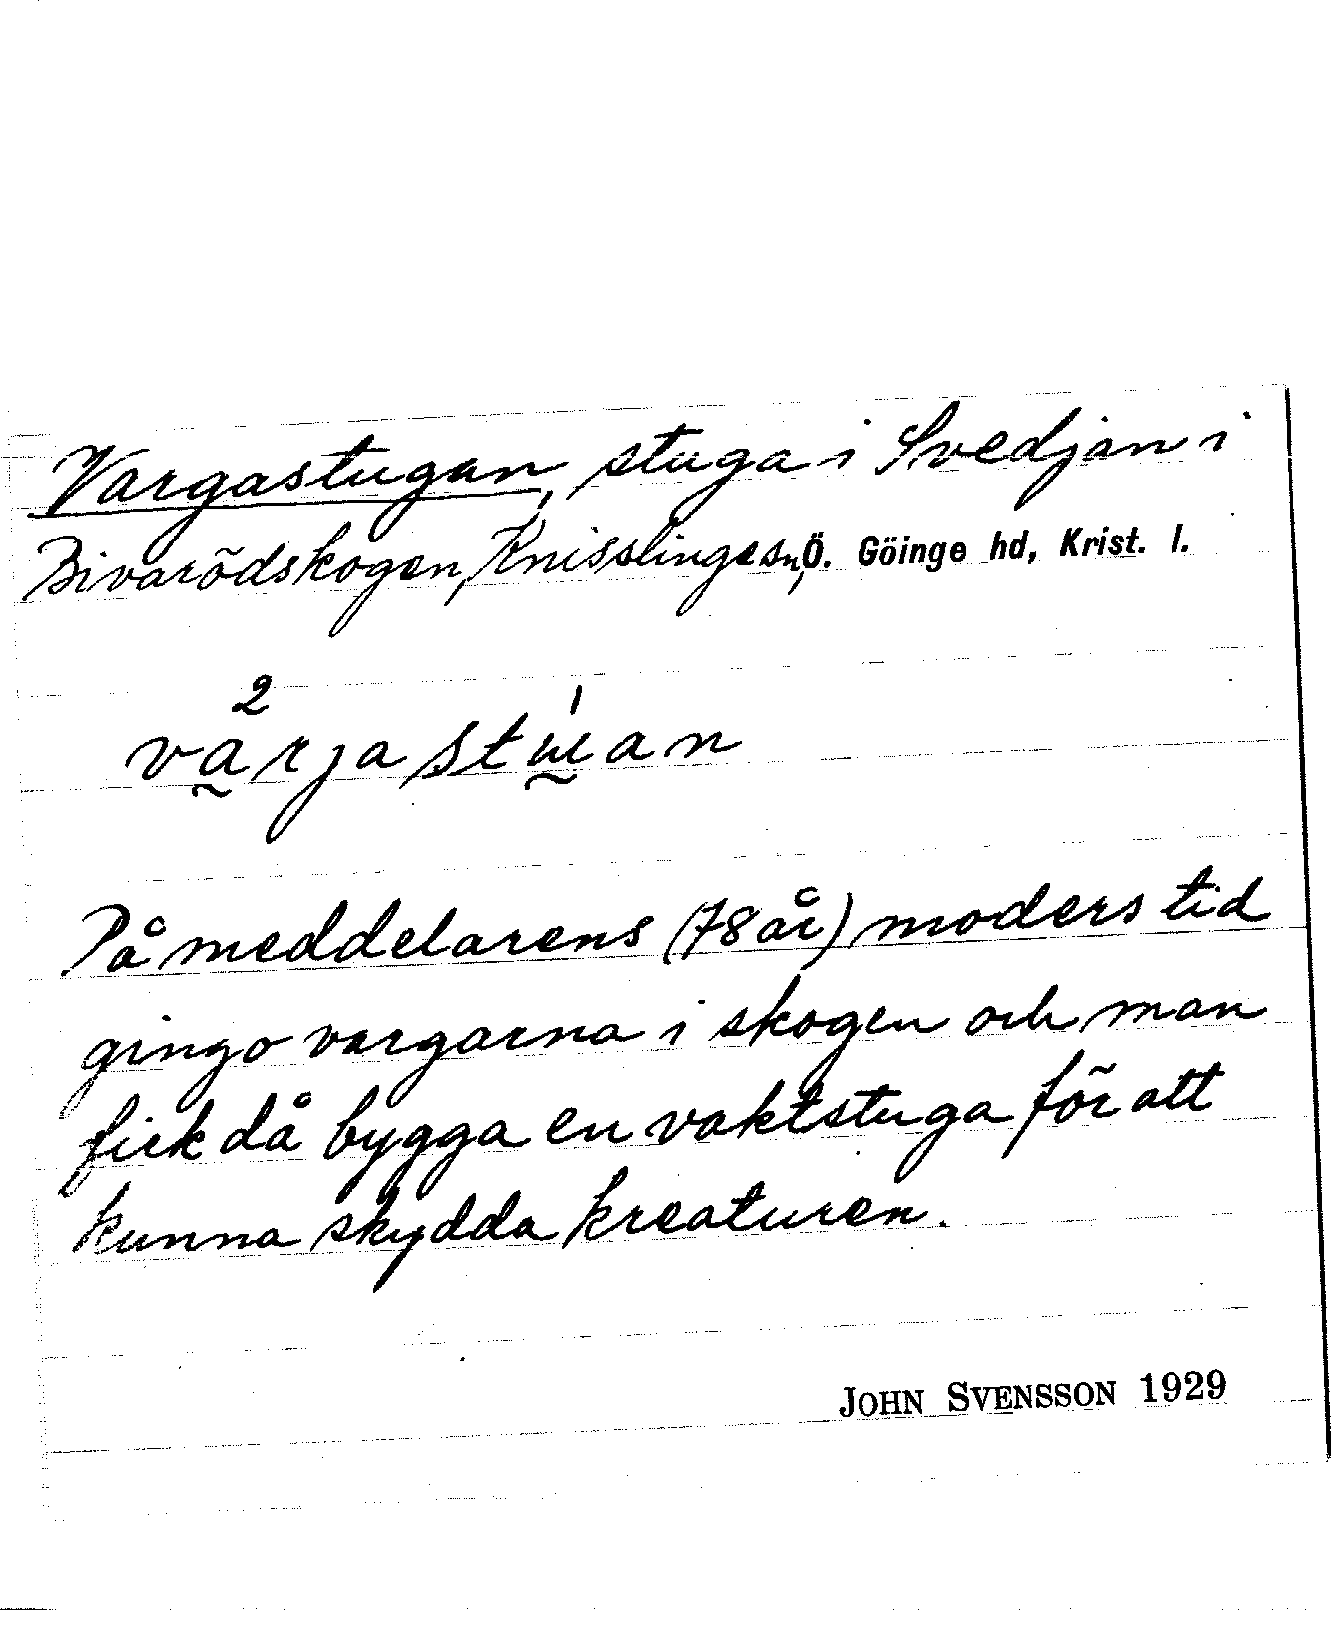 Vargastugan, stuga i Svedjan i
Bivarödskogen, Knisslinge sn, Ö. Göinge hd, Krist. l.
2 ı
varjastɯan
På meddelarens (78 år) moders tid
gingo vargarna i skogen och man
fick då bygga en vaktstuga för att
kunna skydda kreaturen.
JOHN SVENSSON 1929